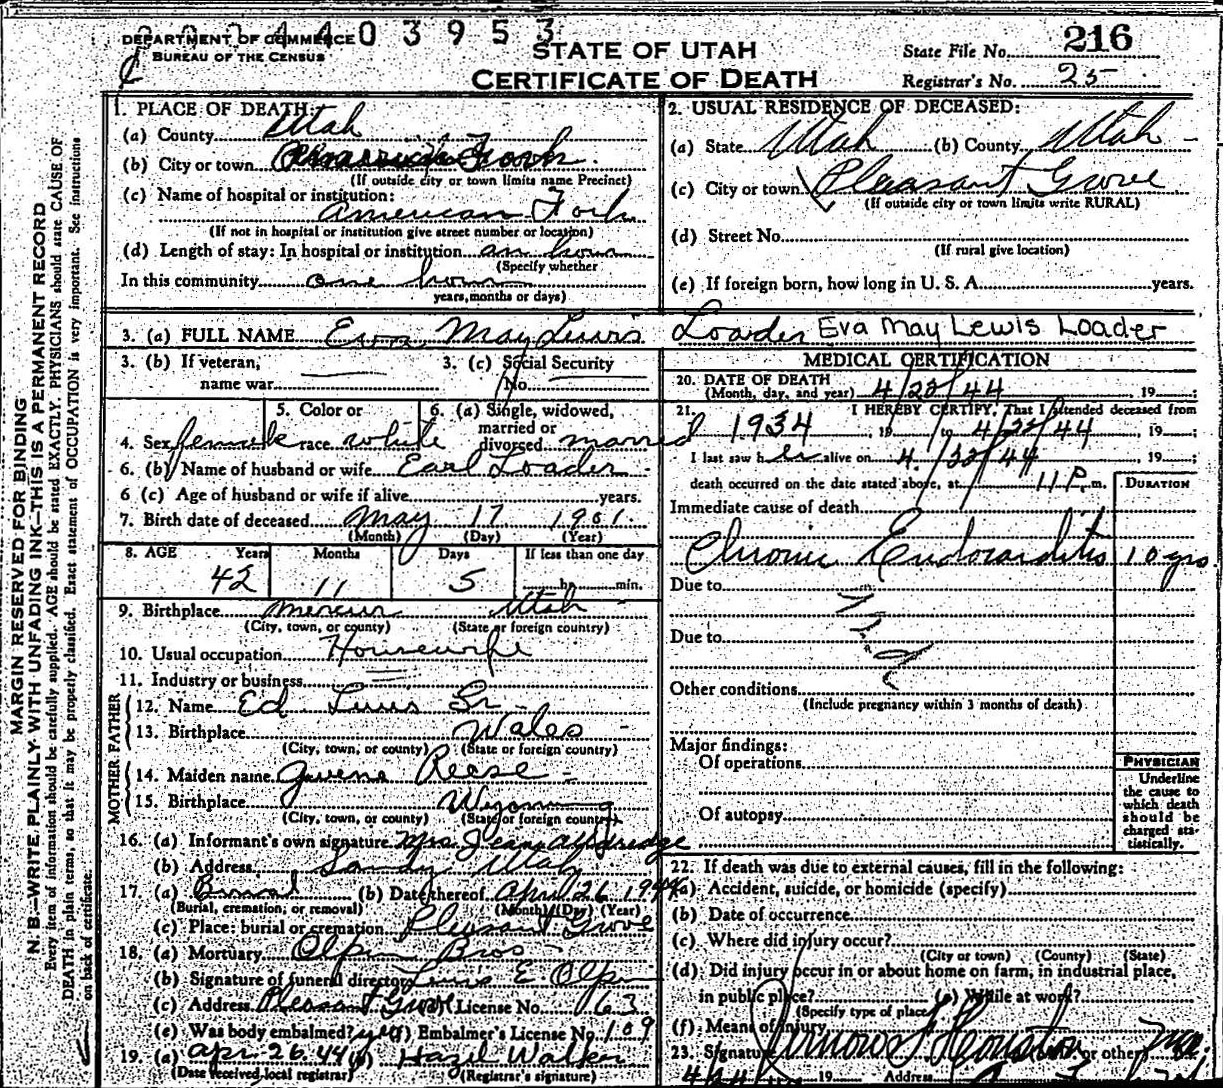 2024403953
DEPARTMENT OF COMMERCE
BUREAU OF THE CENSUS
STATE OF UTAH
CERTIFICATE OF DEATH
State File No. 216
Registrar's No. 25
MARGIN RESERVED FOR BINDING
N. B.—WRITE PLAINLY WITH UNFADING INK—THIS IS A PERMANENT RECORD
Every item of information should be carefully supplied. AGE should be stated EXACTLY. PHYSICIANS should state CAUSE OF
DEATH in plain terms, so that it may be properly classified. Exact statement of OCCUPATION is very important. See instructions
on back of certificate.
1. PLACE OF DEATH:
(a) County Utah
(b) City or town American Fork
(If outside city or town limits name Precinct)
(c) Name of hospital or institution:
American Fork
(If not in hospital or institution give street number or location)
(d) Length of stay: In hospital or institution an hour
(Specify whether
In this community one hour
years, months or days)
2. USUAL RESIDENCE OF DECEASED:
(a) State Utah (b) County Utah
(c) City or town Pleasant Grove
(If outside city or town limits write RURAL)
(d) Street No.
(If rural give location)
(e) If foreign born, how long in U. S. A. years.
3. (a) FULL NAME Eva May Lewis Loader Eva May Lewis Loader
3. (b) If veteran,
name war
3. (c) Social Security
No.
4. Sex female
5. Color or
race white
6. (a) Single, widowed,
married or
divorced married
6. (b) Name of husband or wife Earl Loader
6 (c) Age of husband or wife if alive years.
7. Birth date of deceased May 17 1901
(Month) (Day) (Year)
8. AGE Years Months Days If less than one day
42 11 5 hr. min.
9. Birthplace Mercur Utah
(City, town, or county) (State or foreign country)
10. Usual occupation Housewife
11. Industry or business
FATHER
12. Name Ed Lewis Sr
13. Birthplace Wales
(City, town, or county) (State or foreign country)
MOTHER
14. Maiden name Reese
15. Birthplace Wyoming
(City, town, or county) (State or foreign country)
16. (a) Informant's own signature Mrs. Jean Alldredge
(b) Address Sandy Utah
17. (a) Burial (b) Date thereof April 26 1944
(Burial, cremation, or removal) (Month) (Day) (Year)
(c) Place: burial or cremation Pleasant Grove
18. (a) Mortuary Olpin Bros
(b) Signature of funeral director E Olpin
(c) Address Pleasant Grove License No. 63
(e) Was body embalmed? yes (f) Embalmer's License No. 109
19. (a) Apr. 26. 44 (b) Hazel Walker
(Date received local registrar) (Registrar's signature)
MEDICAL CERTIFICATION
20. DATE OF DEATH
(Month, day, and year) 4/22/44 19
21. I HEREBY CERTIFY, That I attended deceased from
1934, 19 to 4/22/44, 19 ;
I last saw her alive on 4/22/44, 19 ;
death occurred on the date stated above, at 11 P. m. DURATION
Immediate cause of death
Chronic Endocarditis 10 yrs
Due to
Due to
Other conditions
(Include pregnancy within 3 months of death)
Major findings:
Of operations
Of autopsy
PHYSICIAN
Underline
the cause to
which death
should be
charged sta-
tistically.
22. If death was due to external causes, fill in the following:
(a) Accident, suicide, or homicide (specify)
(b) Date of occurrence
(c) Where did injury occur?
(City or town) (County) (State)
(d) Did injury occur in or about home on farm, in industrial place,
in public place? (e) While at work?
(Specify type of place)
(f) Means of injury
23. Signature Houston or other
19 Address